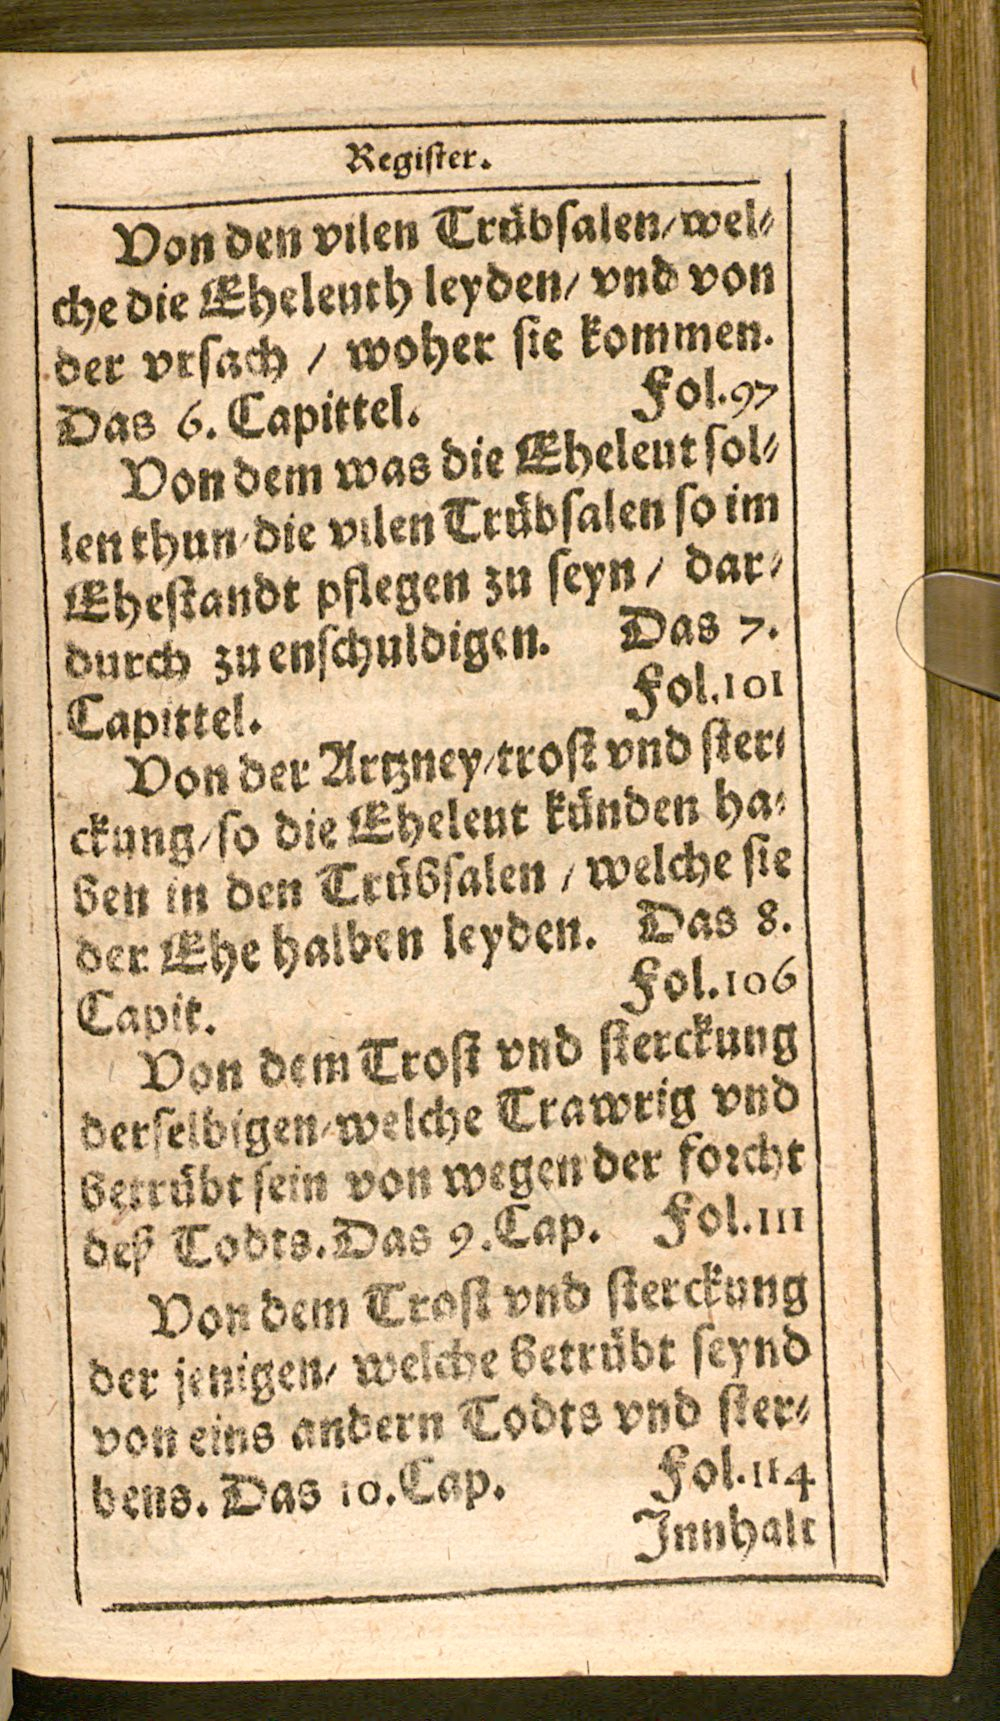 Regiſter.
Von den vilen Trübſalen/ wel⸗
che die Eheleuth leyden/ vnd von
der vrſach / woher ſie kommen.
Das 6. Capittel. Fol.97
Von dem was die Eheleut ſol⸗
len thun/ die vilen Trübſalen ſo im
Eheſtandt pflegen zu ſeyn / dar⸗
durch zu enſchuldigen. Das 7.
Capittel. Fol.101
Von der Artzney/troſt vnd ſter⸗
ckung/ ſo die Eheleut künden ha⸗
ben in den Trübſalen / welche ſie
der Ehe halben leyden. Das 8.
Capit. Fol.106
Von dem Troſt vnd ſterckung
derſelbigen/ welche Trawrig vnd
betrübt ſein von wegen der forcht
deß Todts. Das 9. Cap. Fol.111
Von dem Troſt vnd ſterckung
der jenigen/ welche betrübt ſeynd
von eins andern Todts vnd ſter⸗
bens. Das 10. Cap. Fol.114
Innhalt